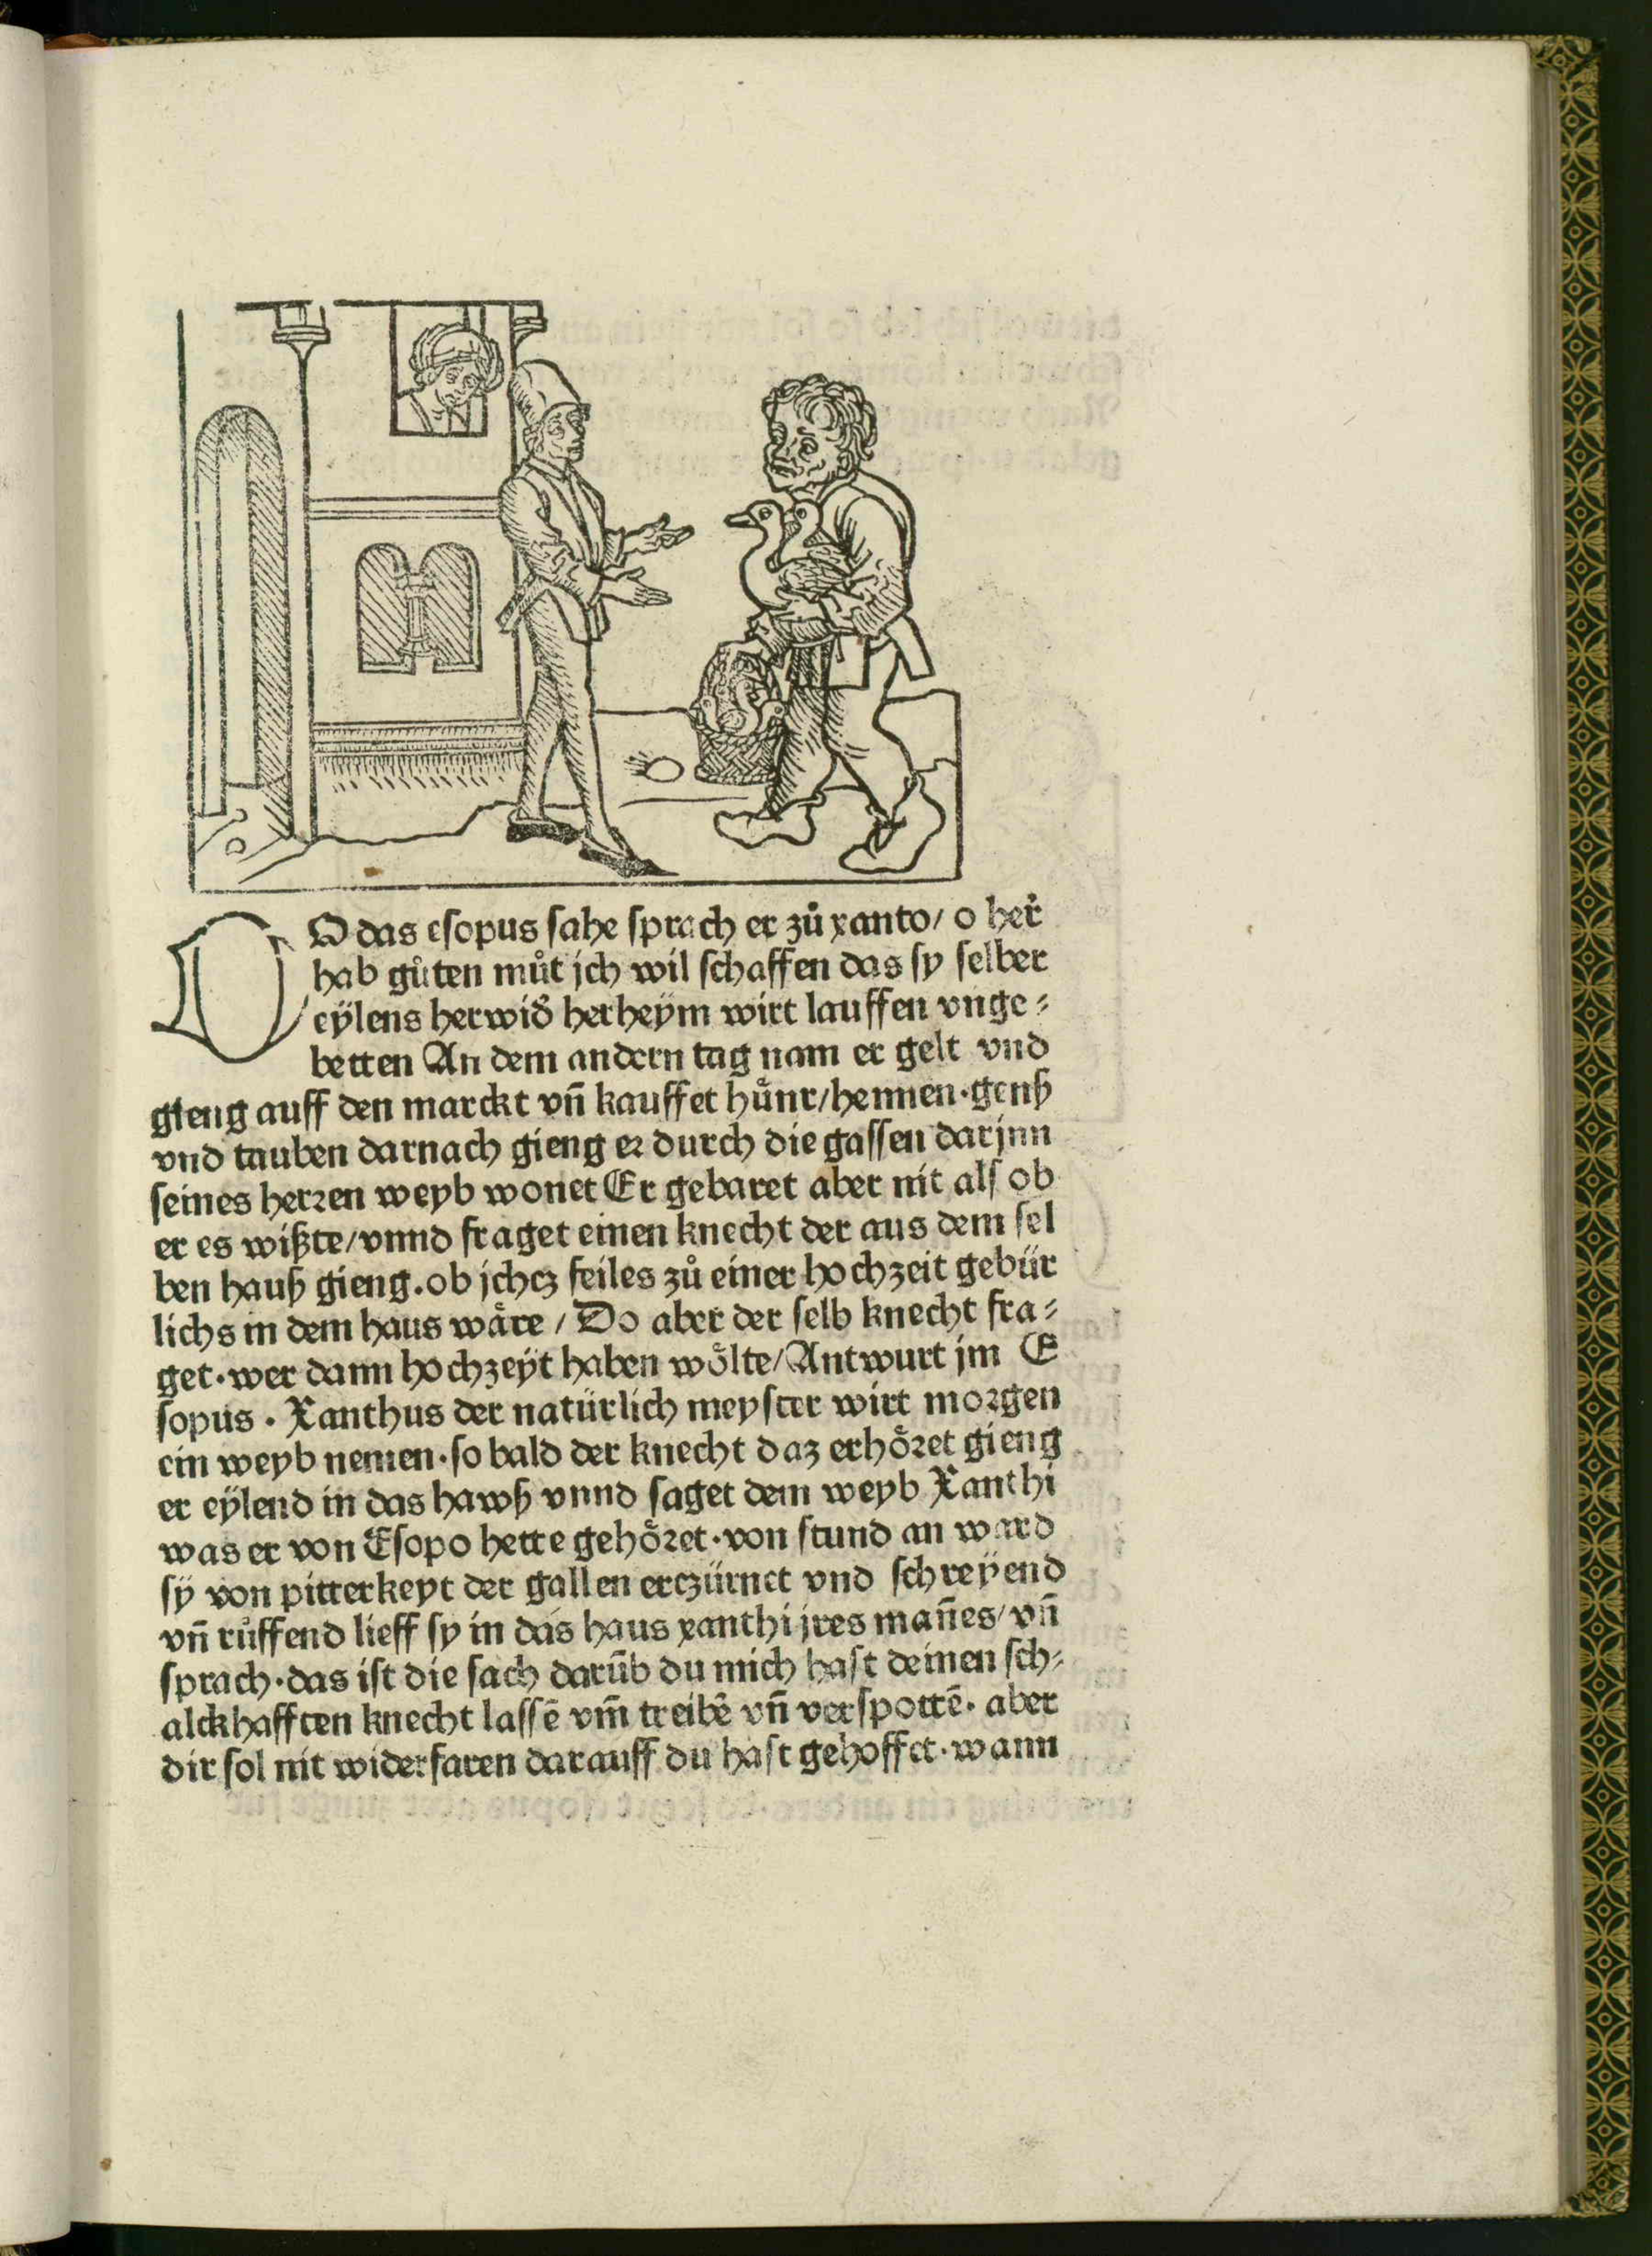 DO das esopus sahe sprach er zů xanto/ o her̃
hab gůten můt jch wil schaffen das sy selber
eÿlens herwid̾ herheÿm wirt lauffen vnge⸗
betten An dem andern tag nam er gelt vnd
gieng auff den marckt vñ kauffet hůnr/hennen·genß
vnd tauben darnach gieng er durch die gassen darjnn
seines herren weyb wonet Er gebaret aber nit als ob
er es wißte/vnnd fraget einen knecht der aus dem sel
ben hauß gieng.ob jchcz feiles zů einer hochzeit gebür
lichs in dem haus wåre / Do aber der selb knecht fra⸗
get·wer dann hochzeÿt haben wölte/Antwurt jm E
sopus · Xanthus der natürlich meyster wirt morgen
ein weyb nemen·so bald der knecht daz erhöret gieng
er eÿlend in das hawß vnnd saget dem weyb Xanthi
was er von Esopo hette gehöret·von stund an ward
sÿ von pitterkeyt der gallen erczürnet vnd schreÿend
vñ růffend lieff sy in das haus xanthi jres mañes/vñ
sprach·das ist die sach darūb du mich hast deinen sch⸗
alckhafften knecht lassē vm̃ treibē vñ verspottē· aber
dir sol nit widerfaren darauff du hast gehoffet·wann